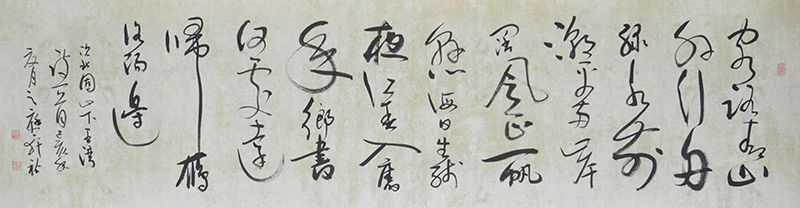 客路青山
外行舟
綠水前
潮平兩岸
闊風正一帆
懸海日生殘
夜江春入舊
年鄉書
何處達
歸雁
洛陽邊
次北固山下王灣
詩一首己亥
月之